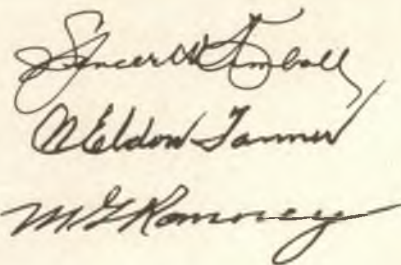 Spencer W. Kimball
N Eldon Tanner
M G Romney